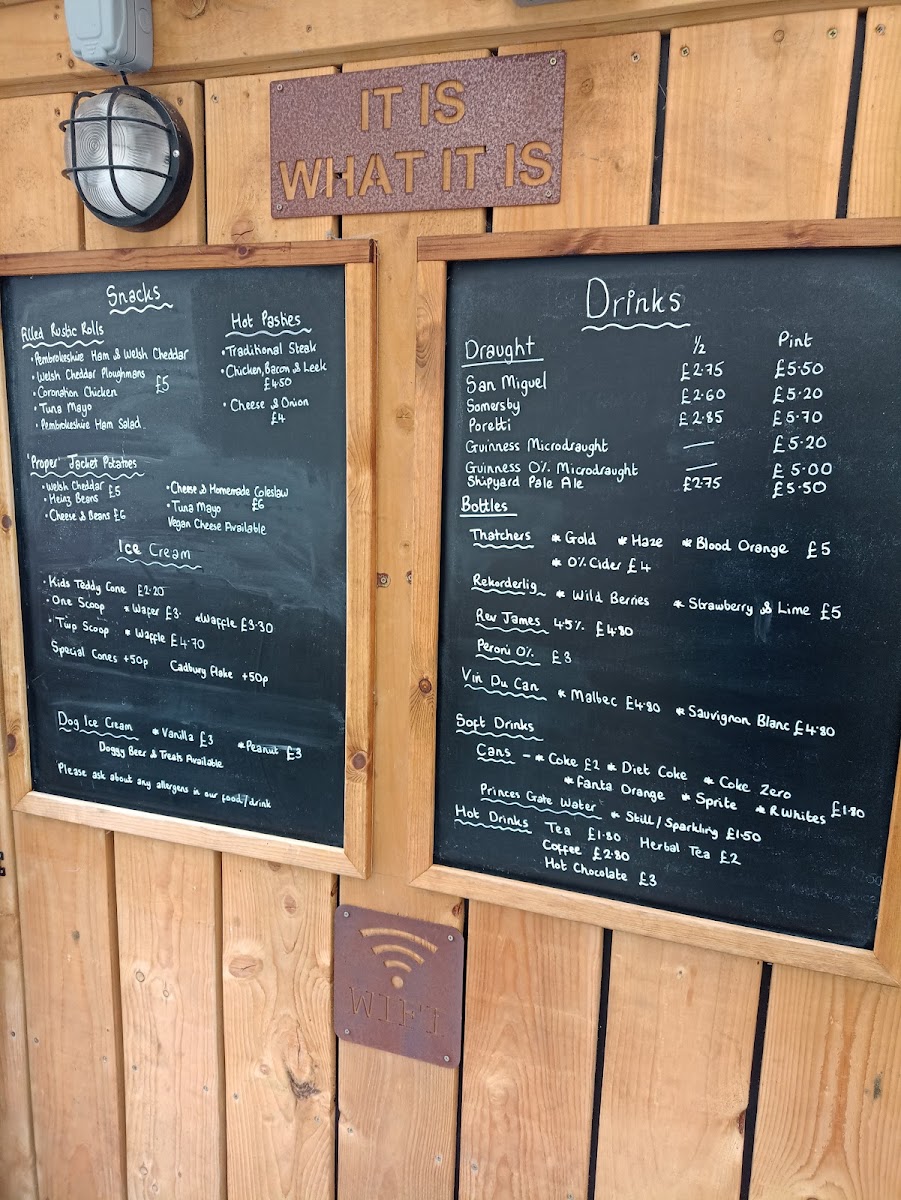 IT IS
WHAT IT IS
Snacks
Filled Rustic Rolls
• Pembrokeshire Ham & Welsh Cheddar
• Welsh Cheddar Ploughmans
• Coronation Chicken £5
• Tuna Mayo
• Pembrokeshire Ham Salad.
Hot Pasties
• Traditional Steak
• Chicken, Bacon & Leek
£4.50
• Cheese & Onion
£4
'Proper' Jacket Potatoes
• Welsh Cheddar
• Heinz Beans £5
• Cheese & Beans £6
• Cheese & Homemade Coleslaw
• Tuna Mayo £6
Vegan Cheese Available
Ice Cream
• Kids Teddy Cone £2.20
• One Scoop * Wafer £3. * Waffle £3.30
• Twp Scoop * Waffle £4.70
Special Cones +50p Cadbury Flake +50p
Dog Ice Cream * Vanilla £3 * Peanut £3
Doggy Beer & Treats Available
Please ask about any allergens in our food/drink
Drinks
Draught ½ Pint
San Miguel £2.75 £5.50
Somersby £2.60 £5.20
Poretti £2.85 £5.70
Guinness Microdraught — £5.20
Guinness 0% Microdraught — £5.00
Shipyard Pale Ale £2.75 £5.50
Bottles
Thatchers * Gold * Haze * Blood Orange £5
* 0% Cider £4
Rekorderlig * Wild Berries * Strawberry & Lime £5
Rev James 4.5% £4.80
Peroni 0% £3
Vin Du Can * Malbec £4.80 * Sauvignon Blanc £4.80
Soft Drinks
Cans - * Coke £2 * Diet Coke * Coke Zero
* Fanta Orange * Sprite * R.Whites £1.80
Princes Gate Water * Still/Sparkling £1.50
Hot Drinks Tea £1.80 Herbal Tea £2
Coffee £2.80
Hot Chocolate £3
WIFI